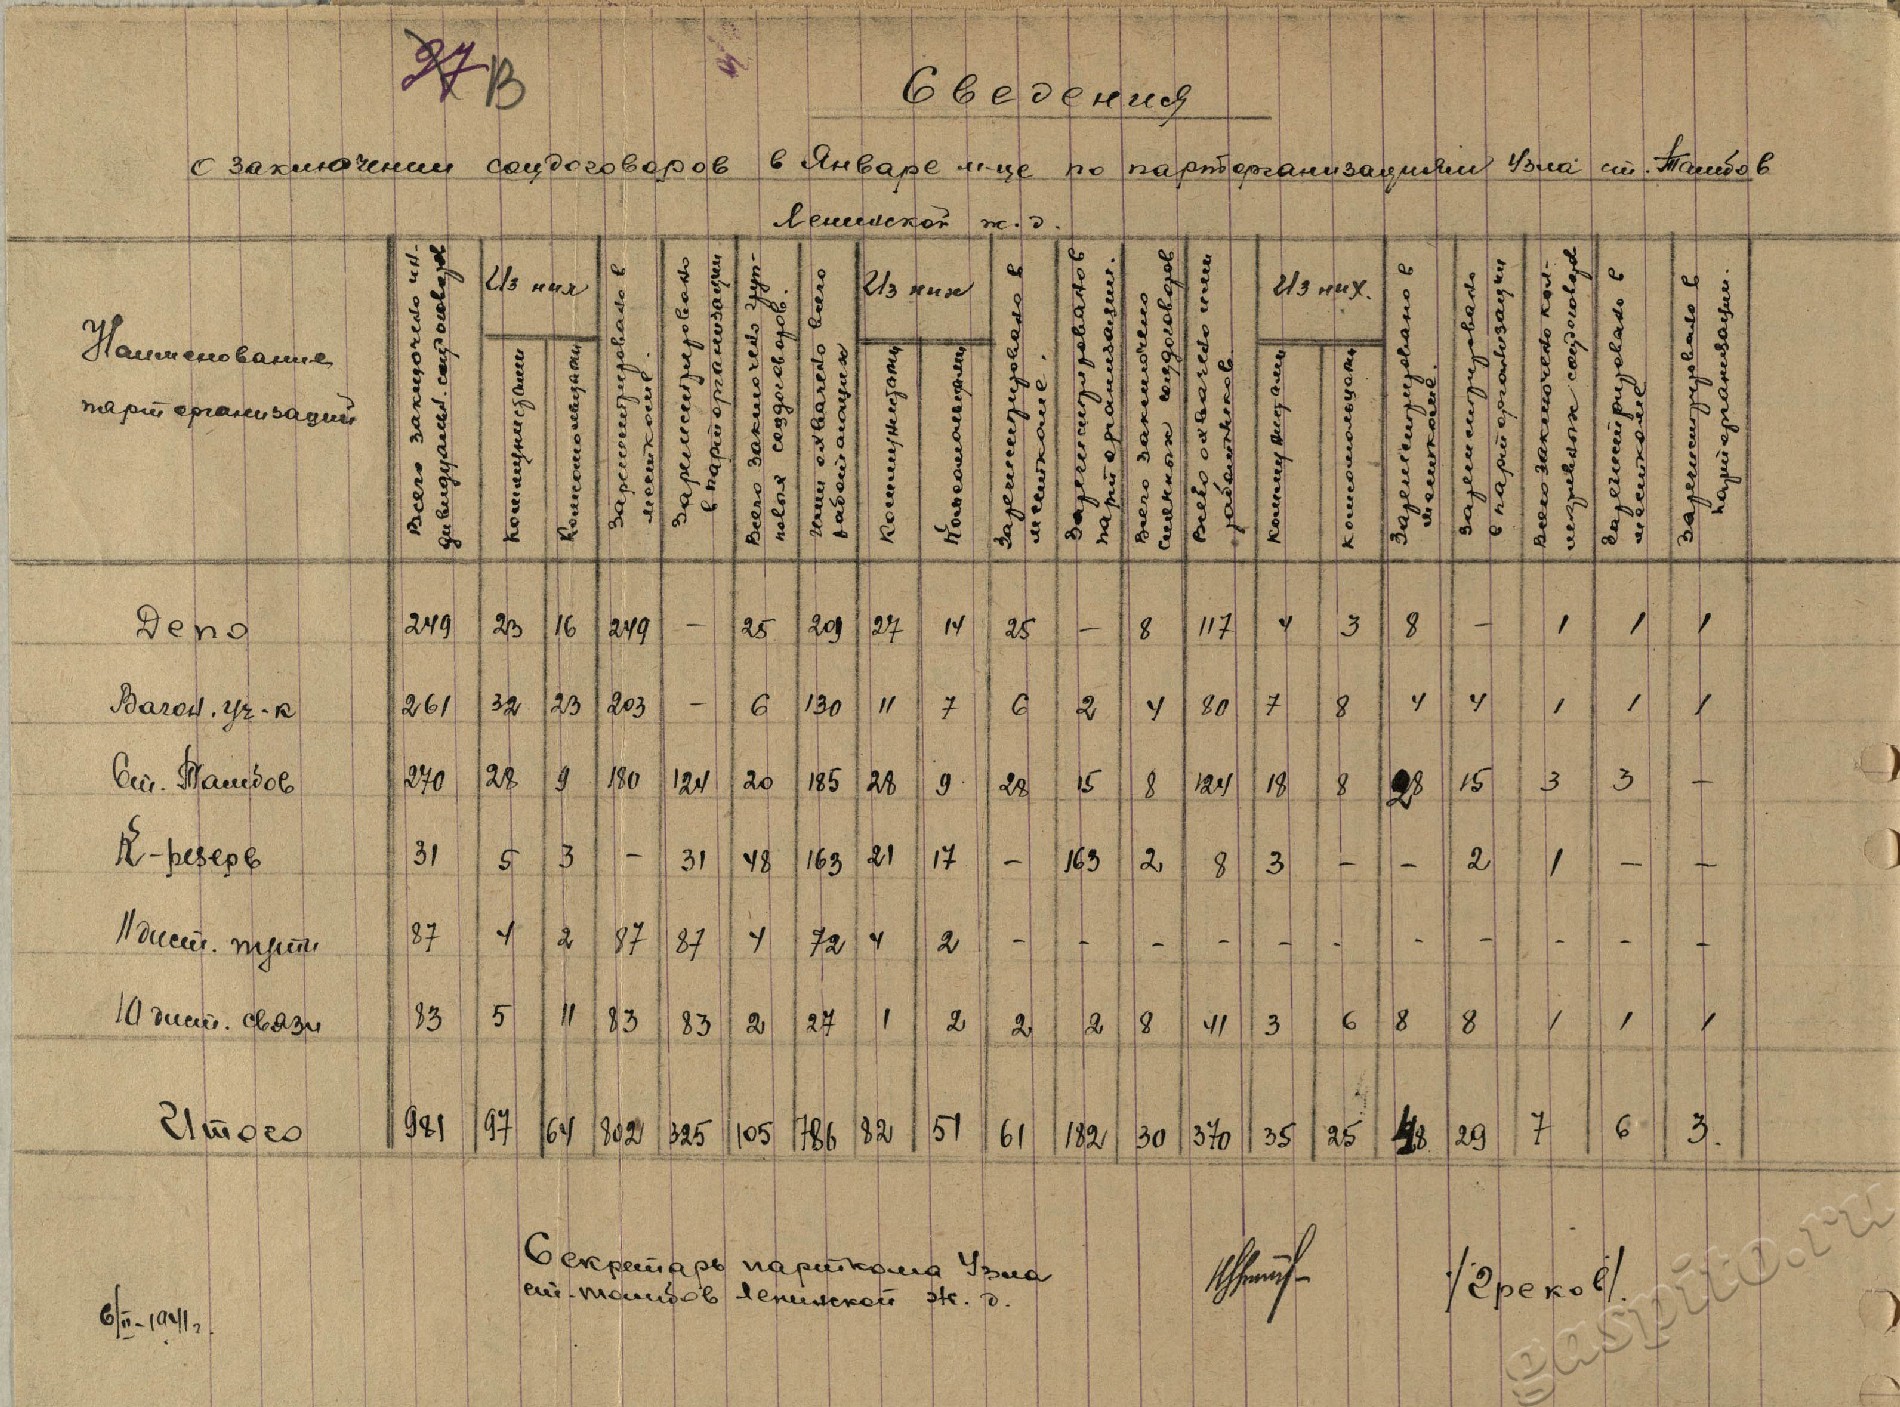 27 В
Сведения
о заключении соцдоговоров в Январе м-це по парторганизациям Узла ст. Тамбов
Ленинской ж.д.
Наименование
парторганизаций
Всего заключено ин-
дивидуальн. соцдоговоров
Из них
Коммунистами
Комсомольцами
Зарегистрировано в
месткоме.
Зарегистрировано
в парторганизации
Всего заключено груп-
повых соцдоговоров.
Ими охвачено всего
работающих
Из них
Коммунистами
Комсомольцами
Зарегистрировано в
месткоме.
Зарегистрировано в
парторганизации.
Всего заключено
сменных соцдоговоров
Всего охвачено ими
работников
Из них.
Коммунистами
Комсомольцами
Зарегистрировано в
месткоме.
Зарегистрировано
в парторганизации
Всего заключено кол-
лективных соцдоговоров
Зарегистрировано в
месткоме
Зарегистрировано в
парторганизации.
Депо 249 23 16 249 – 25 209 27 14 25 – 8 117 4 3 8 – 1 1 1
Вагон. уч-к 261 32 23 203 – 6 130 11 7 6 2 4 80 7 8 4 4 1 1 1
Ст. Тамбов 270 28 9 180 124 20 185 28 9 28 15 8 124 18 8 28 15 3 3 –
К-резерв 31 5 3 – 31 48 163 21 17 – 163 2 8 3 – – 2 1 – –
11 дист. пути 87 4 2 87 87 4 72 4 2 – – – – – – – – – – –
10 дист. связи 83 5 11 83 83 2 27 1 2 2 2 8 41 3 6 8 8 1 1 1
Итого 981 97 64 802 325 105 786 82 51 61 182 30 370 35 25 48 29 7 6 3.
Секретарь парткома Узла
ст. Тамбов Ленинской ж. д.
/Греков/.
6/II-1941г.
gaspito.ru